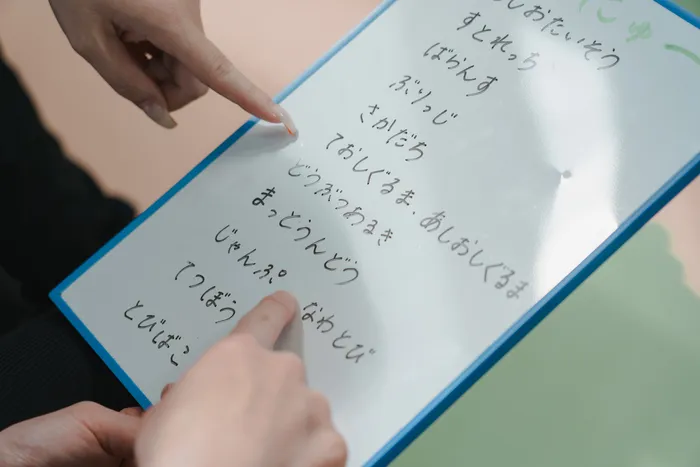 にゅー
じおたいそう
すとれっち
ばらんす
ぶりっじ
さかだち
ておしぐるま・あしおしぐるま
どうぶつあるき
まっとうんどう
じゃんぷ なわとび
てつぼう
とびばこ